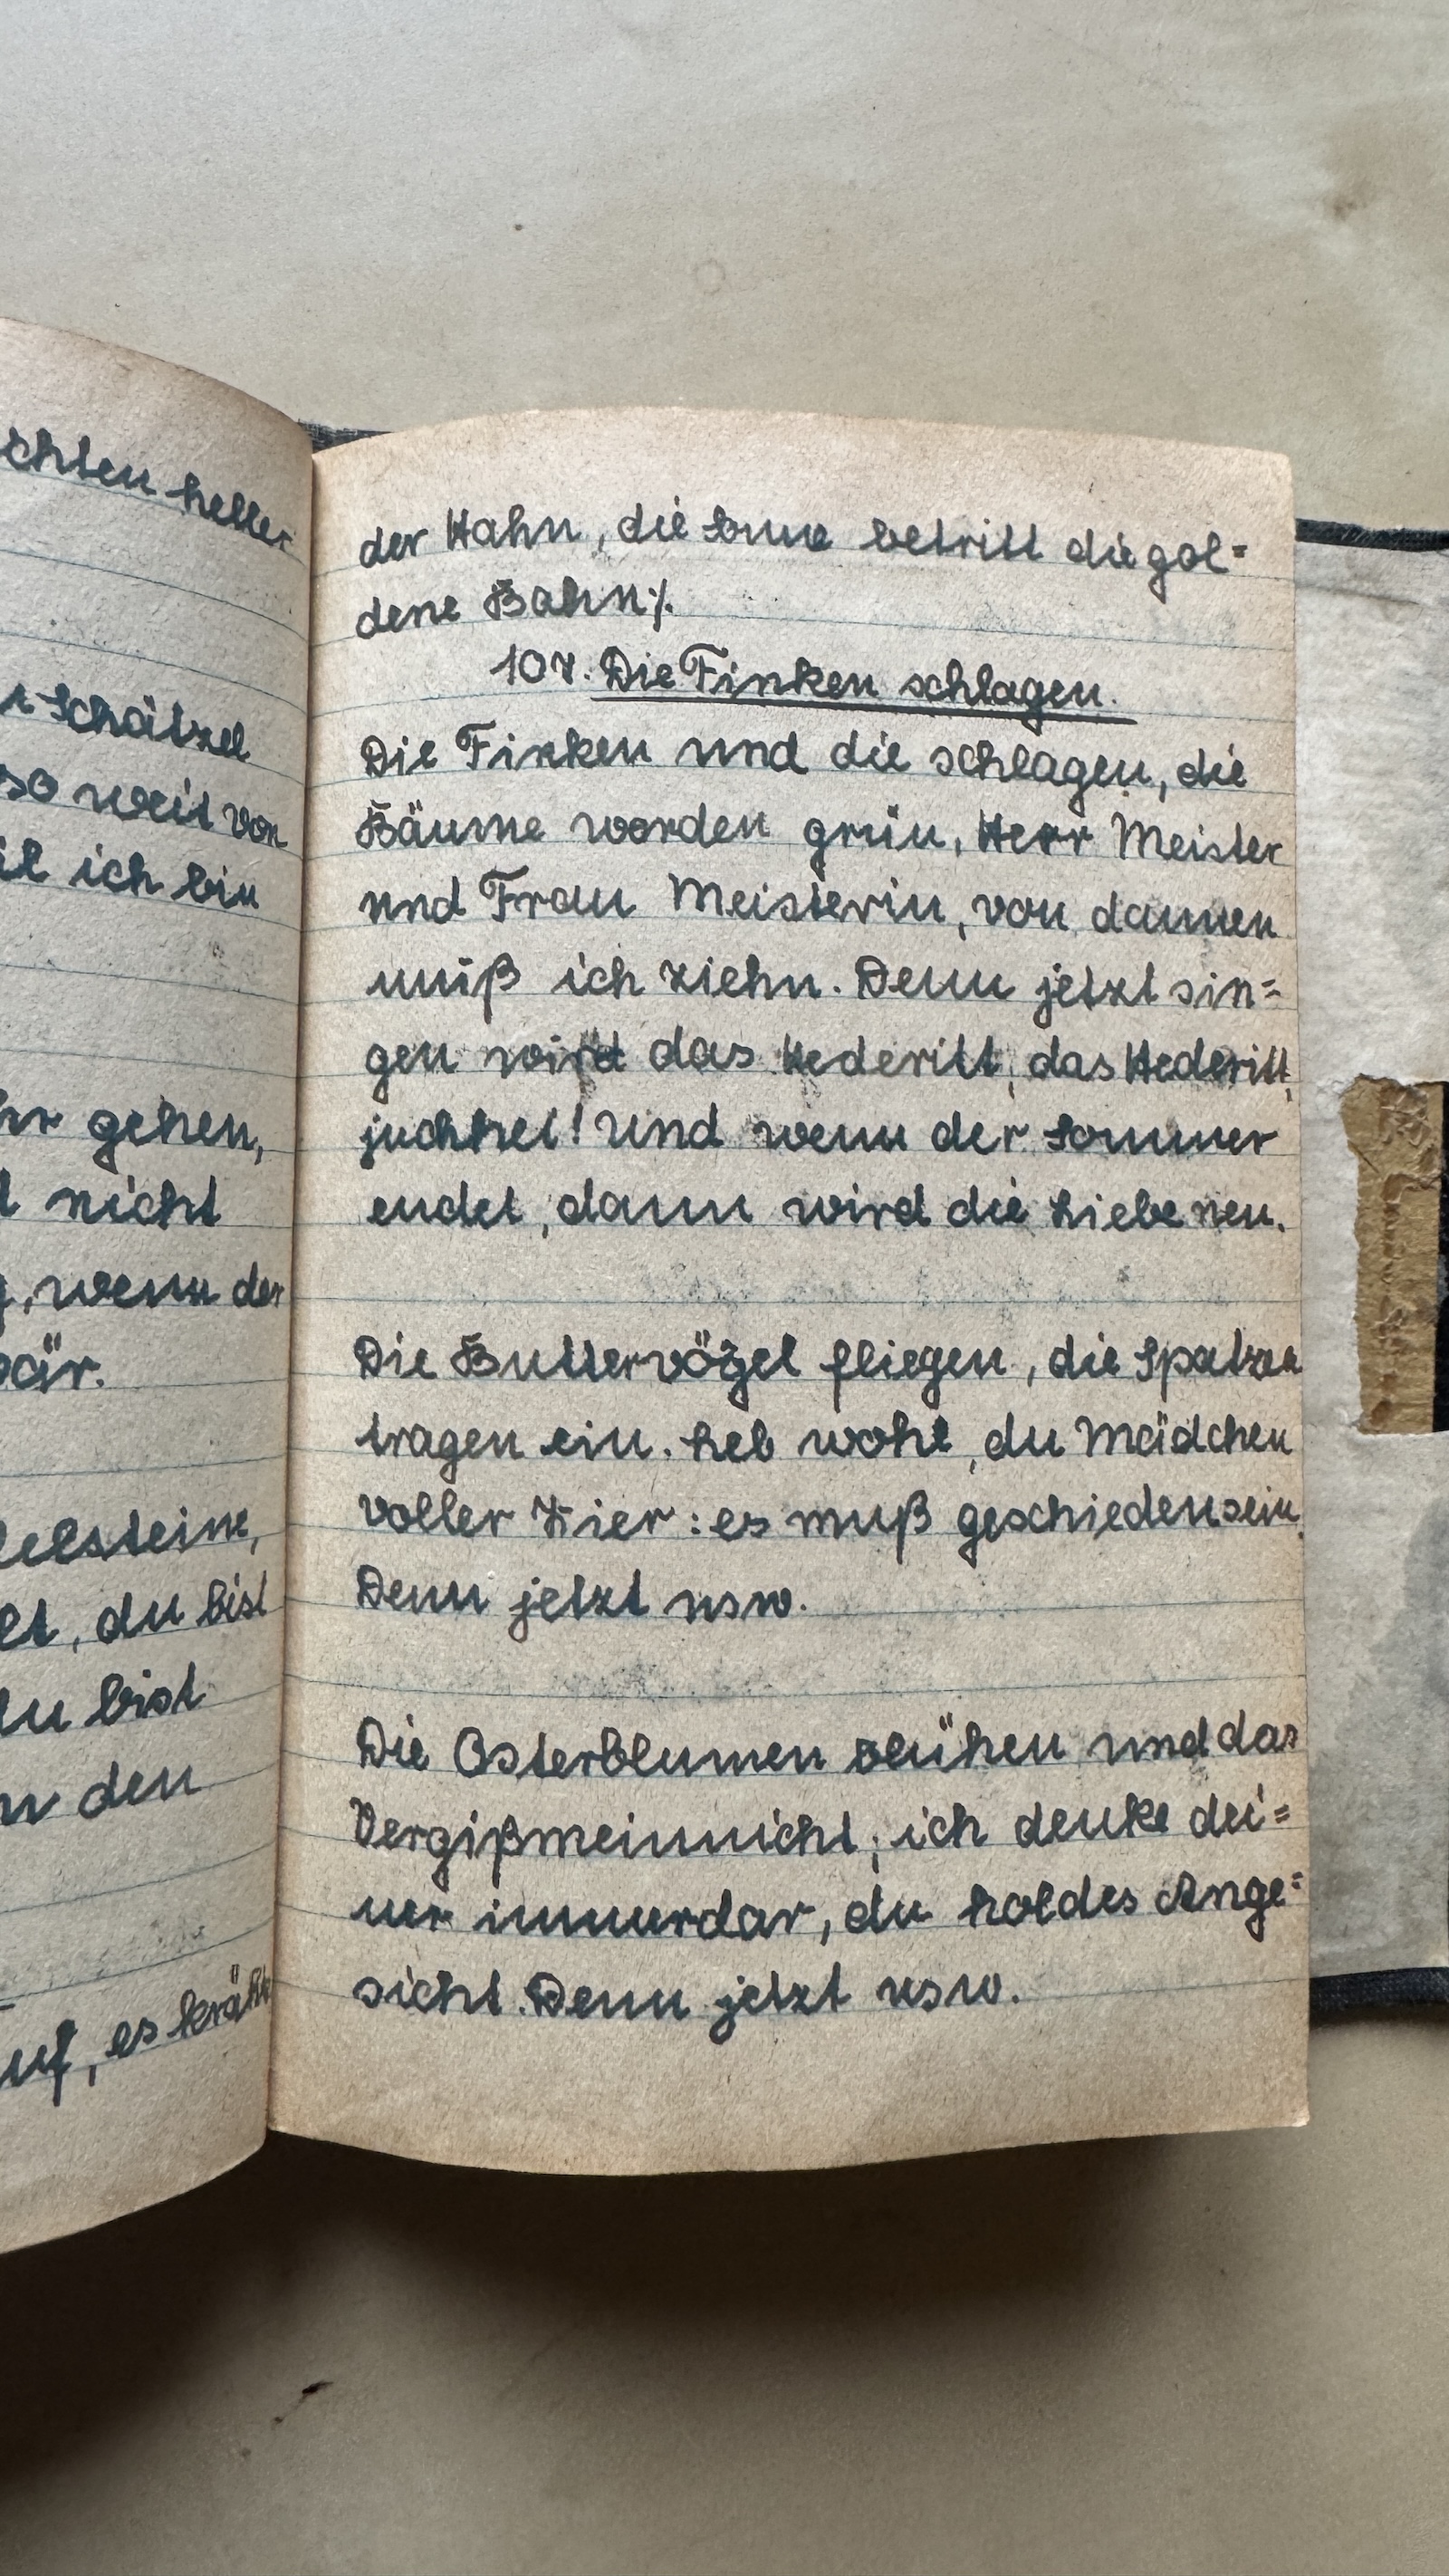 chten heller
Schätzel
so weit von
ich bin
gehen,
nicht
wenn der
elsteine,
du bist
du bist
den
es kräht
der Hahn, die Sonne betritt die gol=
dene Bahn:/.
107. Die Finken schlagen.
Die Finken und die schlagen, die
Bäume worden grün, Herr Meister
und Frau Meisterin, von dannen
muß ich ziehn. Denn jetzt sin=
gen wird das Hederitt, das Hederitt
juchhei! Und wenn der Sommer
endet, dann wird die Liebe neu.
Die Buttervögel fliegen, die Spatzen
tragen ein. Leb wohl, du Mädchen
voller Zier: es muß geschieden sein.
Denn jetzt usw.
Die Osterblumen blühen und das
Vergißmeinnicht, ich denke dei=
ner immerdar, du holdes Ange=
sicht. Denn jetzt usw.